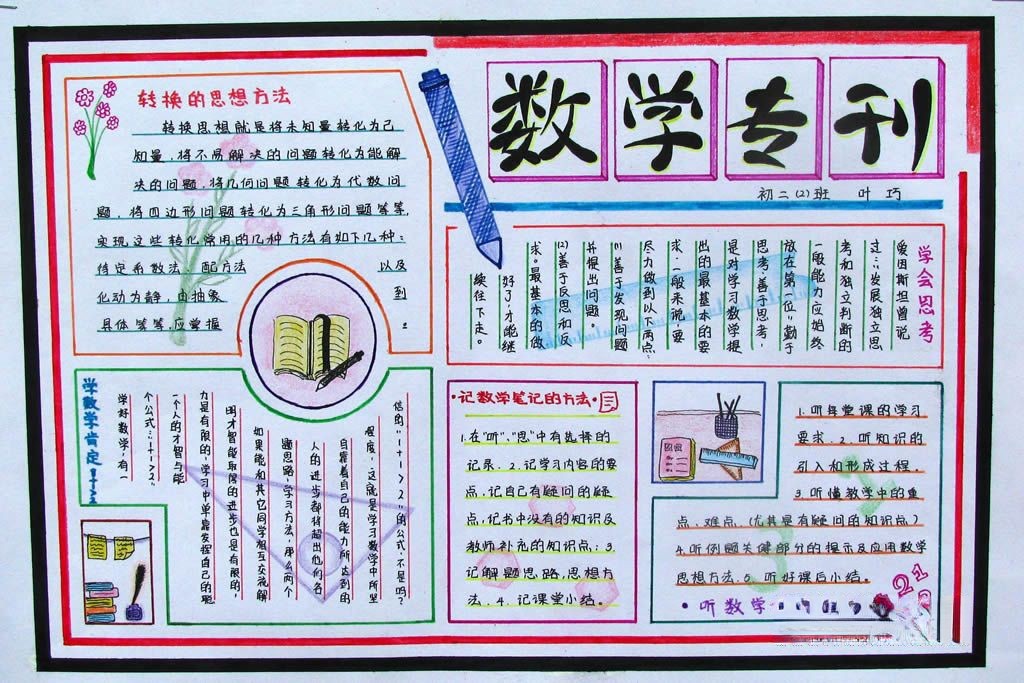 数学专刊
初二(2)班 叶巧
转换的思想方法
转换思想就是将未知量转化为已
知量,将不易解决的问题转化为能解
决的问题,将几何问题转化为代数问
题,将四边形问题转化为三角形问题等等,
实现这些转化常用的几种方法有如下几种:
待定系数法、配方法 以及
化动为静,由抽象 到
具体等等,应掌握 。
学会思考
爱因斯坦曾说
过:"发展独立思
考和独立判断的
一般能力应始终
放在第一位"勤于
思考,善于思考,
是对学习数学提
出的最基本的要
求,一般来说,要
尽力做到以下两点:
(1)善于发现问题
并提出问题。
(2)善于反思和反
求。最基本的做
好了,才能继
续往下走。
学数学肯定1+1>2
学好数学,有一
个公式:"1+1>2"
一个人的才智与能
力是有限的,学习中单靠发挥自己的聪
明才智能取得的进步也是有限的,
如果能和其它同学相互交流解
题思路,学习方法,那么两个
人的进步都将超出他们各
自靠着自己的能力所达到的
程度,这就是学习数学中所坚
信的"1+1>2"的公式,不是吗?
·记数学笔记的方法·
1.在"听""思"中有选择的
记录.2.记学习内容的要
点,记自己有疑问的疑
点,记书中没有的知识及
教师补充的知识点;3.
记解题思路,思想方
法.4.记课堂小结。
1.听每堂课的学习
要求.2.听知识的
引入和形成过程.
3.听懂教学中的重
点、难点(尤其是有疑问的知识点)
4.听例题关键部分的提示及应用数学
思想方法.5.听好课后小结。
·听数学